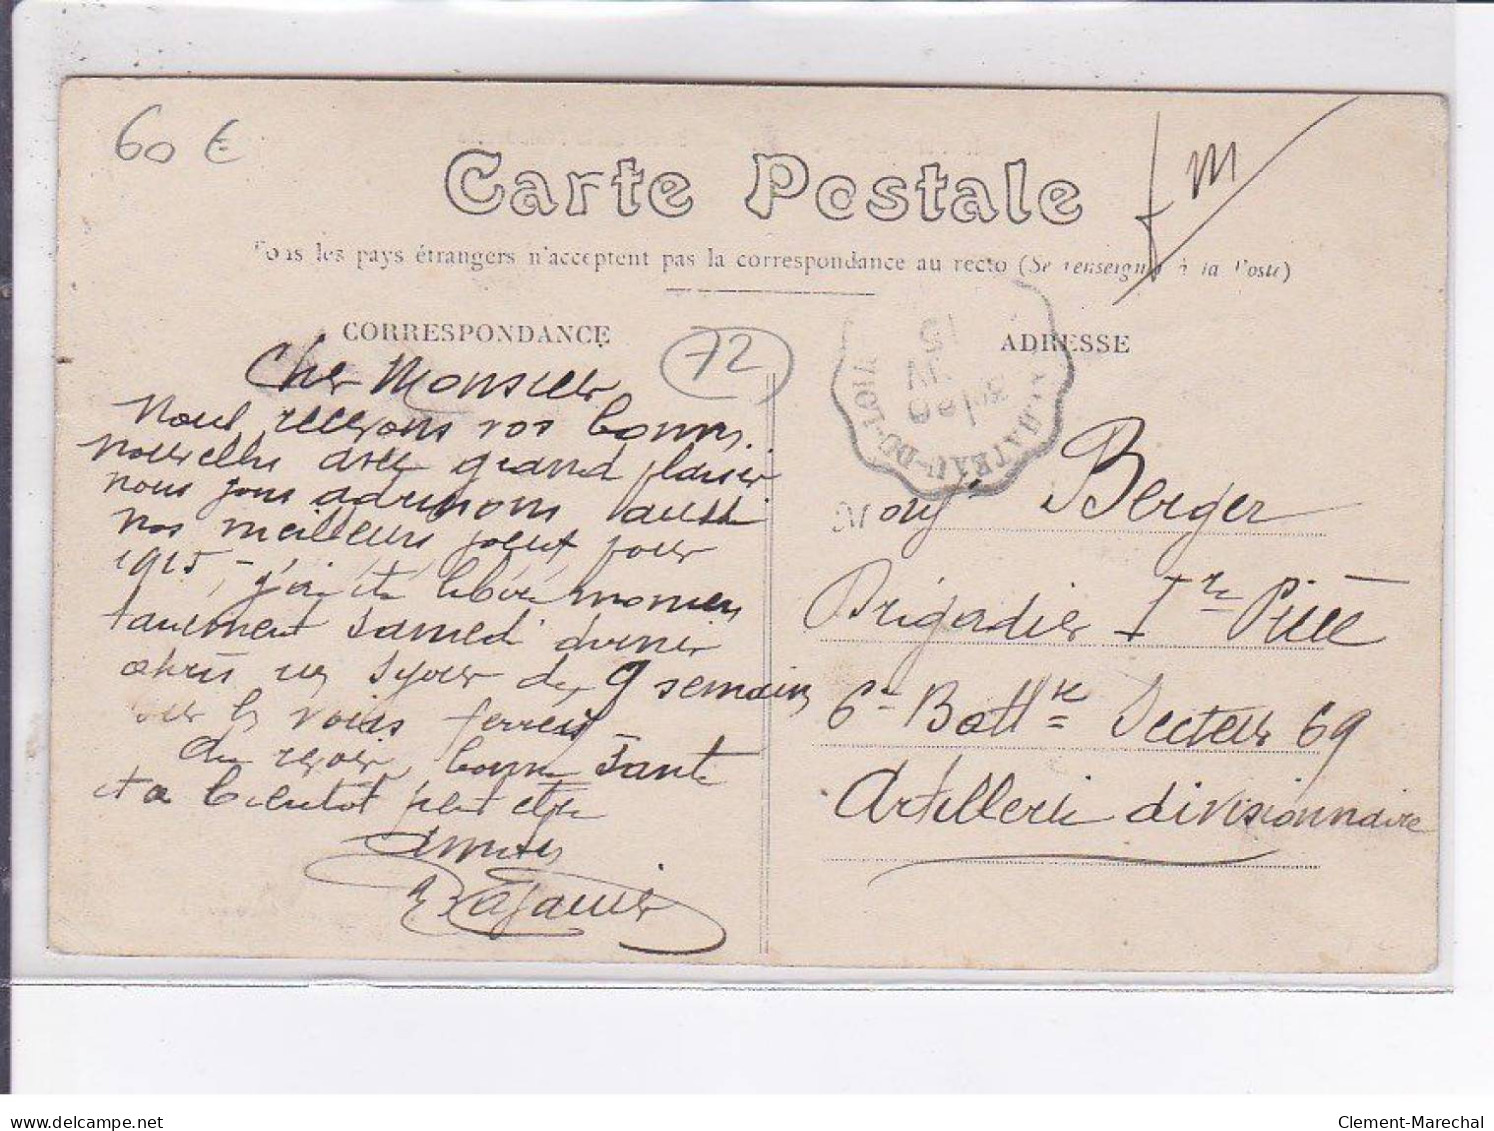 60 €
Carte Postale
f m
Tous les pays étrangers n'acceptent pas la correspondance au recto (Se renseigner à la Poste)
CORRESPONDANCE
72
Cher Monsieur
Nous recevons vos bonnes
nouvelles avec grand plaisir
nous vous adressons aussi
nos meilleurs voeux pour
1915, - j'ai été libéré momen
tanément samedi dernier
après un séjour de 9 semaines
sur les voies ferrées
Au revoir, bonne santé
et a bientot peut etre
Amities
ADRESSE
CHATEAU-DU-LOIR
15
Mons Berger
Brigadier 1re Pièce
6e Battie Secteur 69
Artillerie divisionnaire
Clement-Marechal